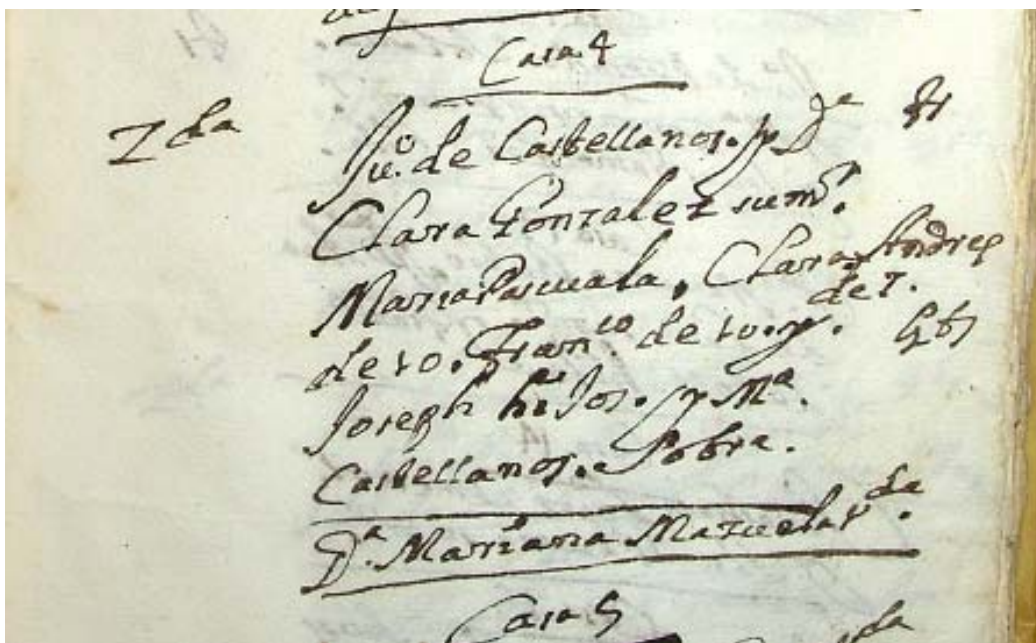 Casa 4
Ju.o de Castellanos. y D.a
Clara Gonzalez su m.r
Maria Pascuala, Clara, Andres
de 10. Fran.co de 10. y. de 7.
Joseph hijos. y M.a
Castellanos. Pobre.
D.a Mariana Mazuela v.da
Casa 5